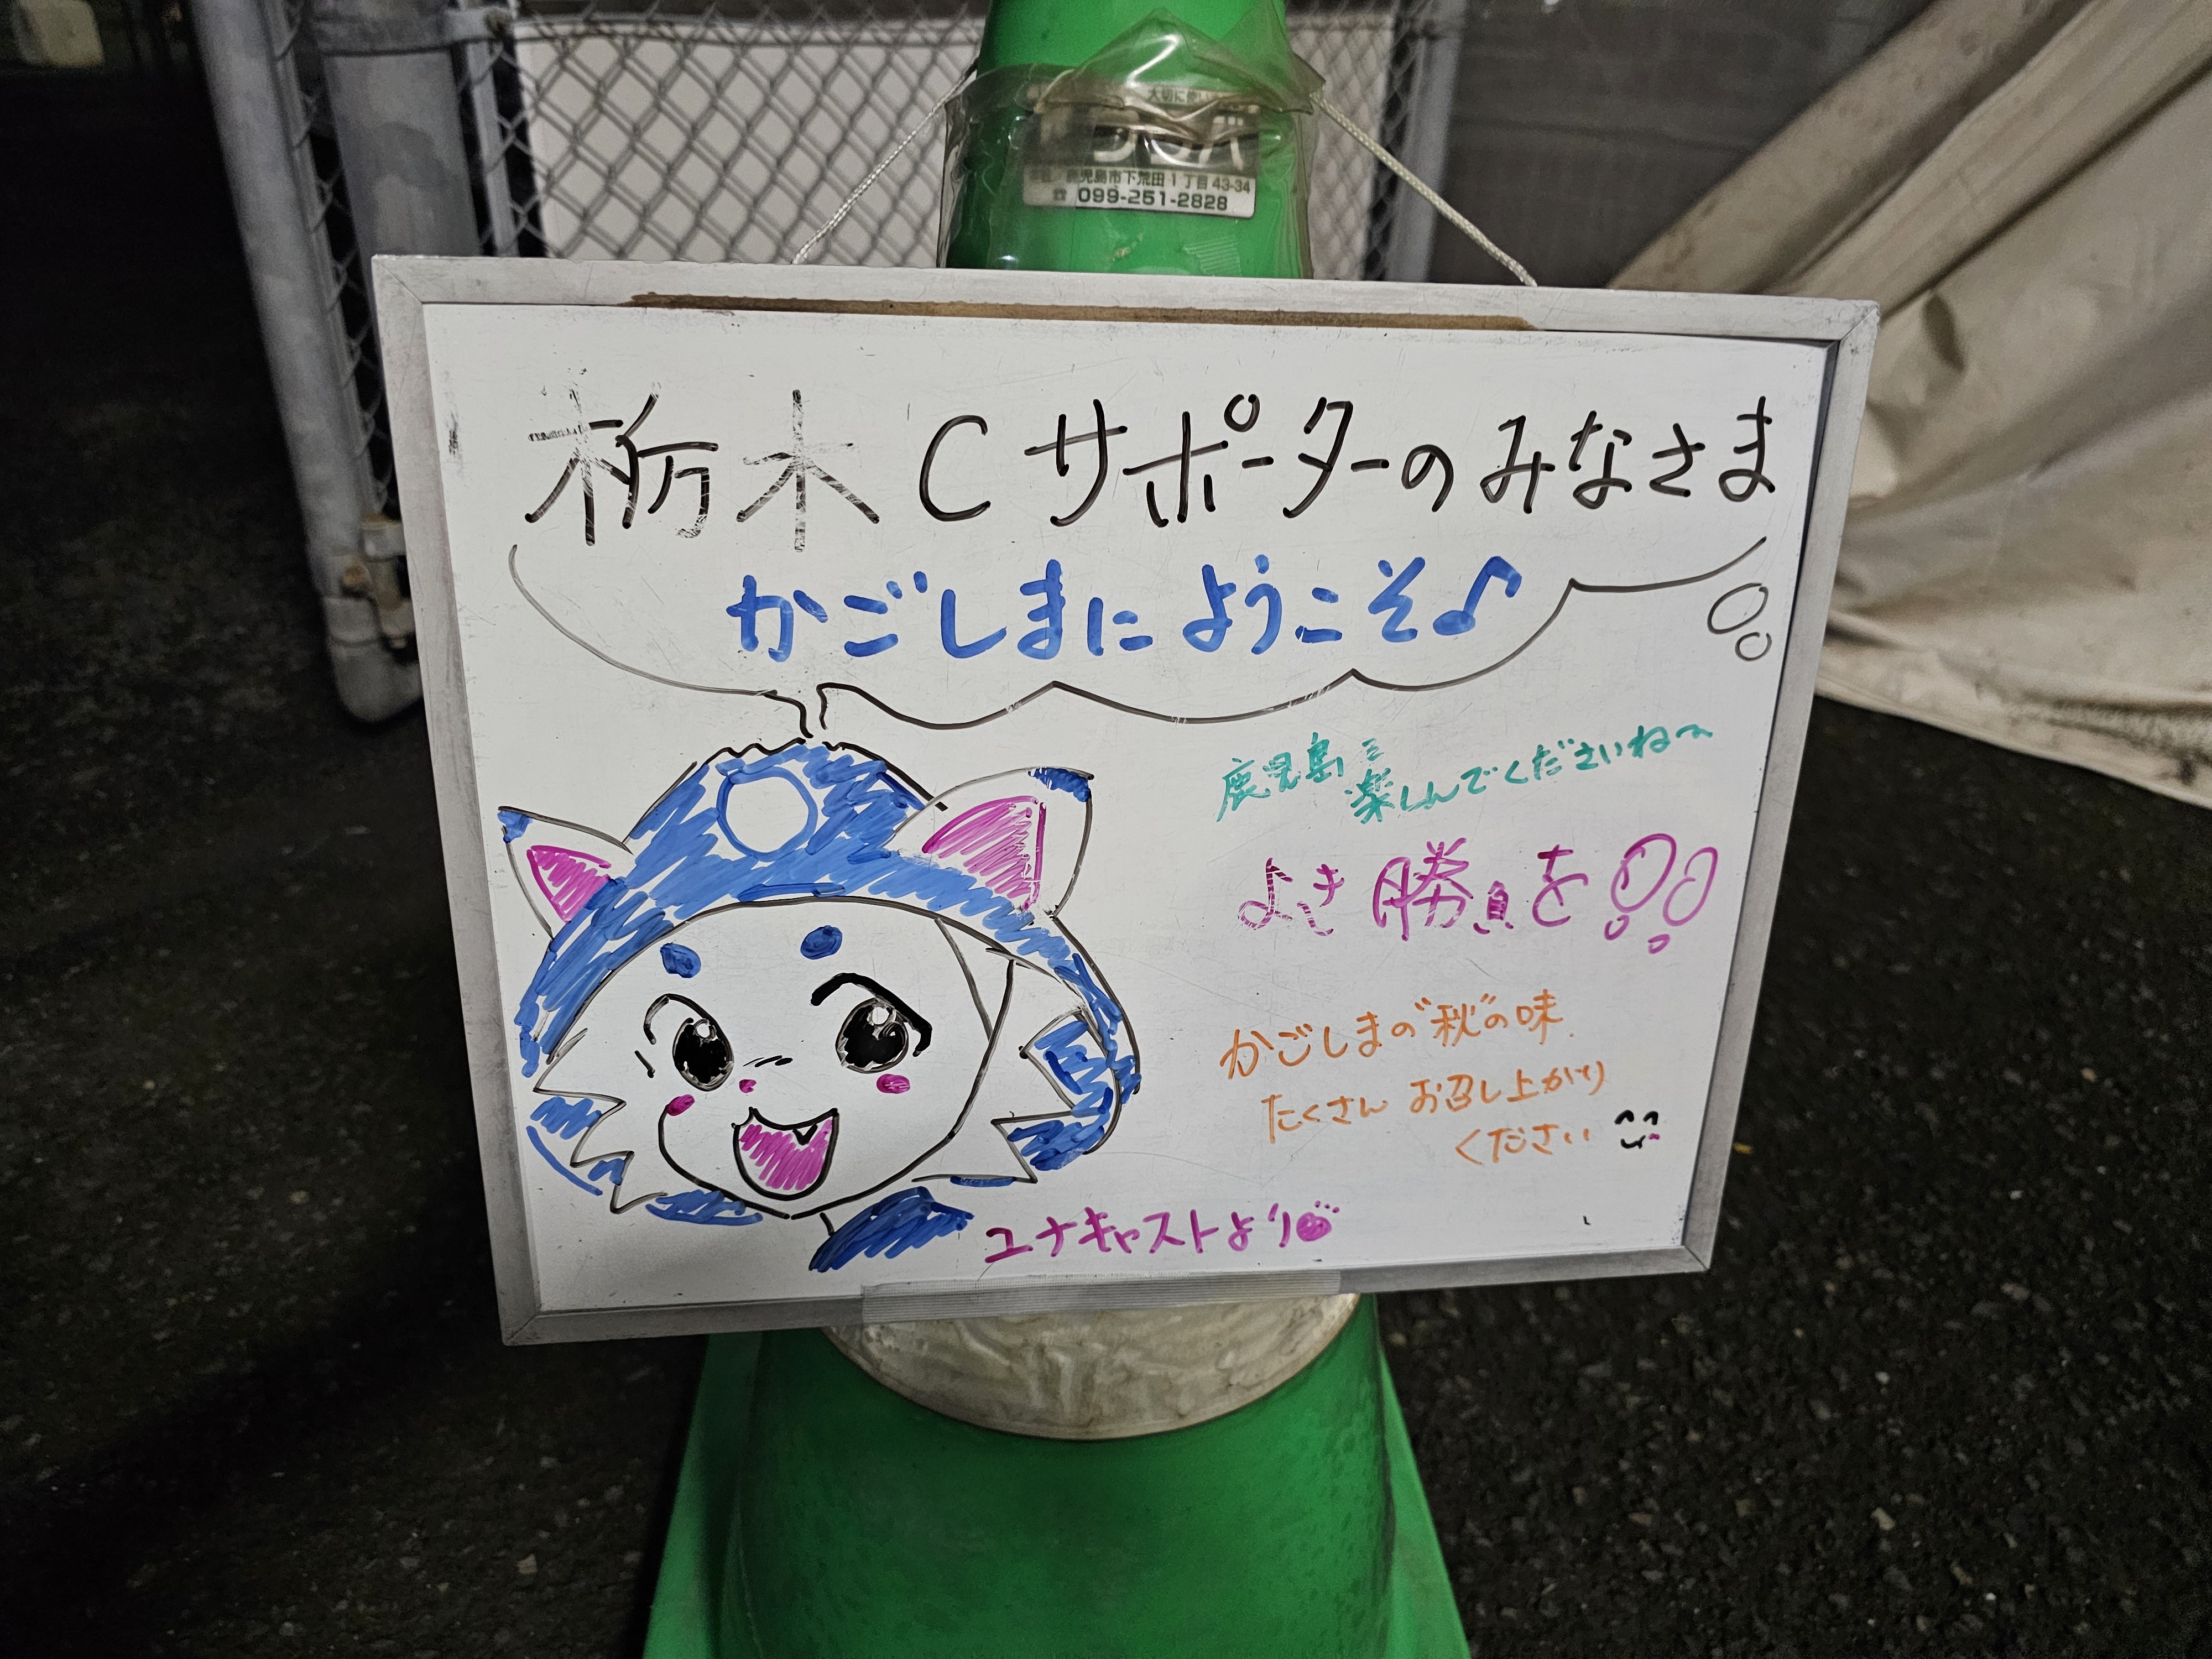 大切に使い
鹿児島市下荒田1丁目43-34
☎099-251-2828
栃木Cサポーターのみなさま
かごしまにようこそ♪
鹿児島を
楽しんでくださいね〜
よき勝負を!!
かごしまの"秋"の味
たくさんお召し上がり
ください
ユナキャストより